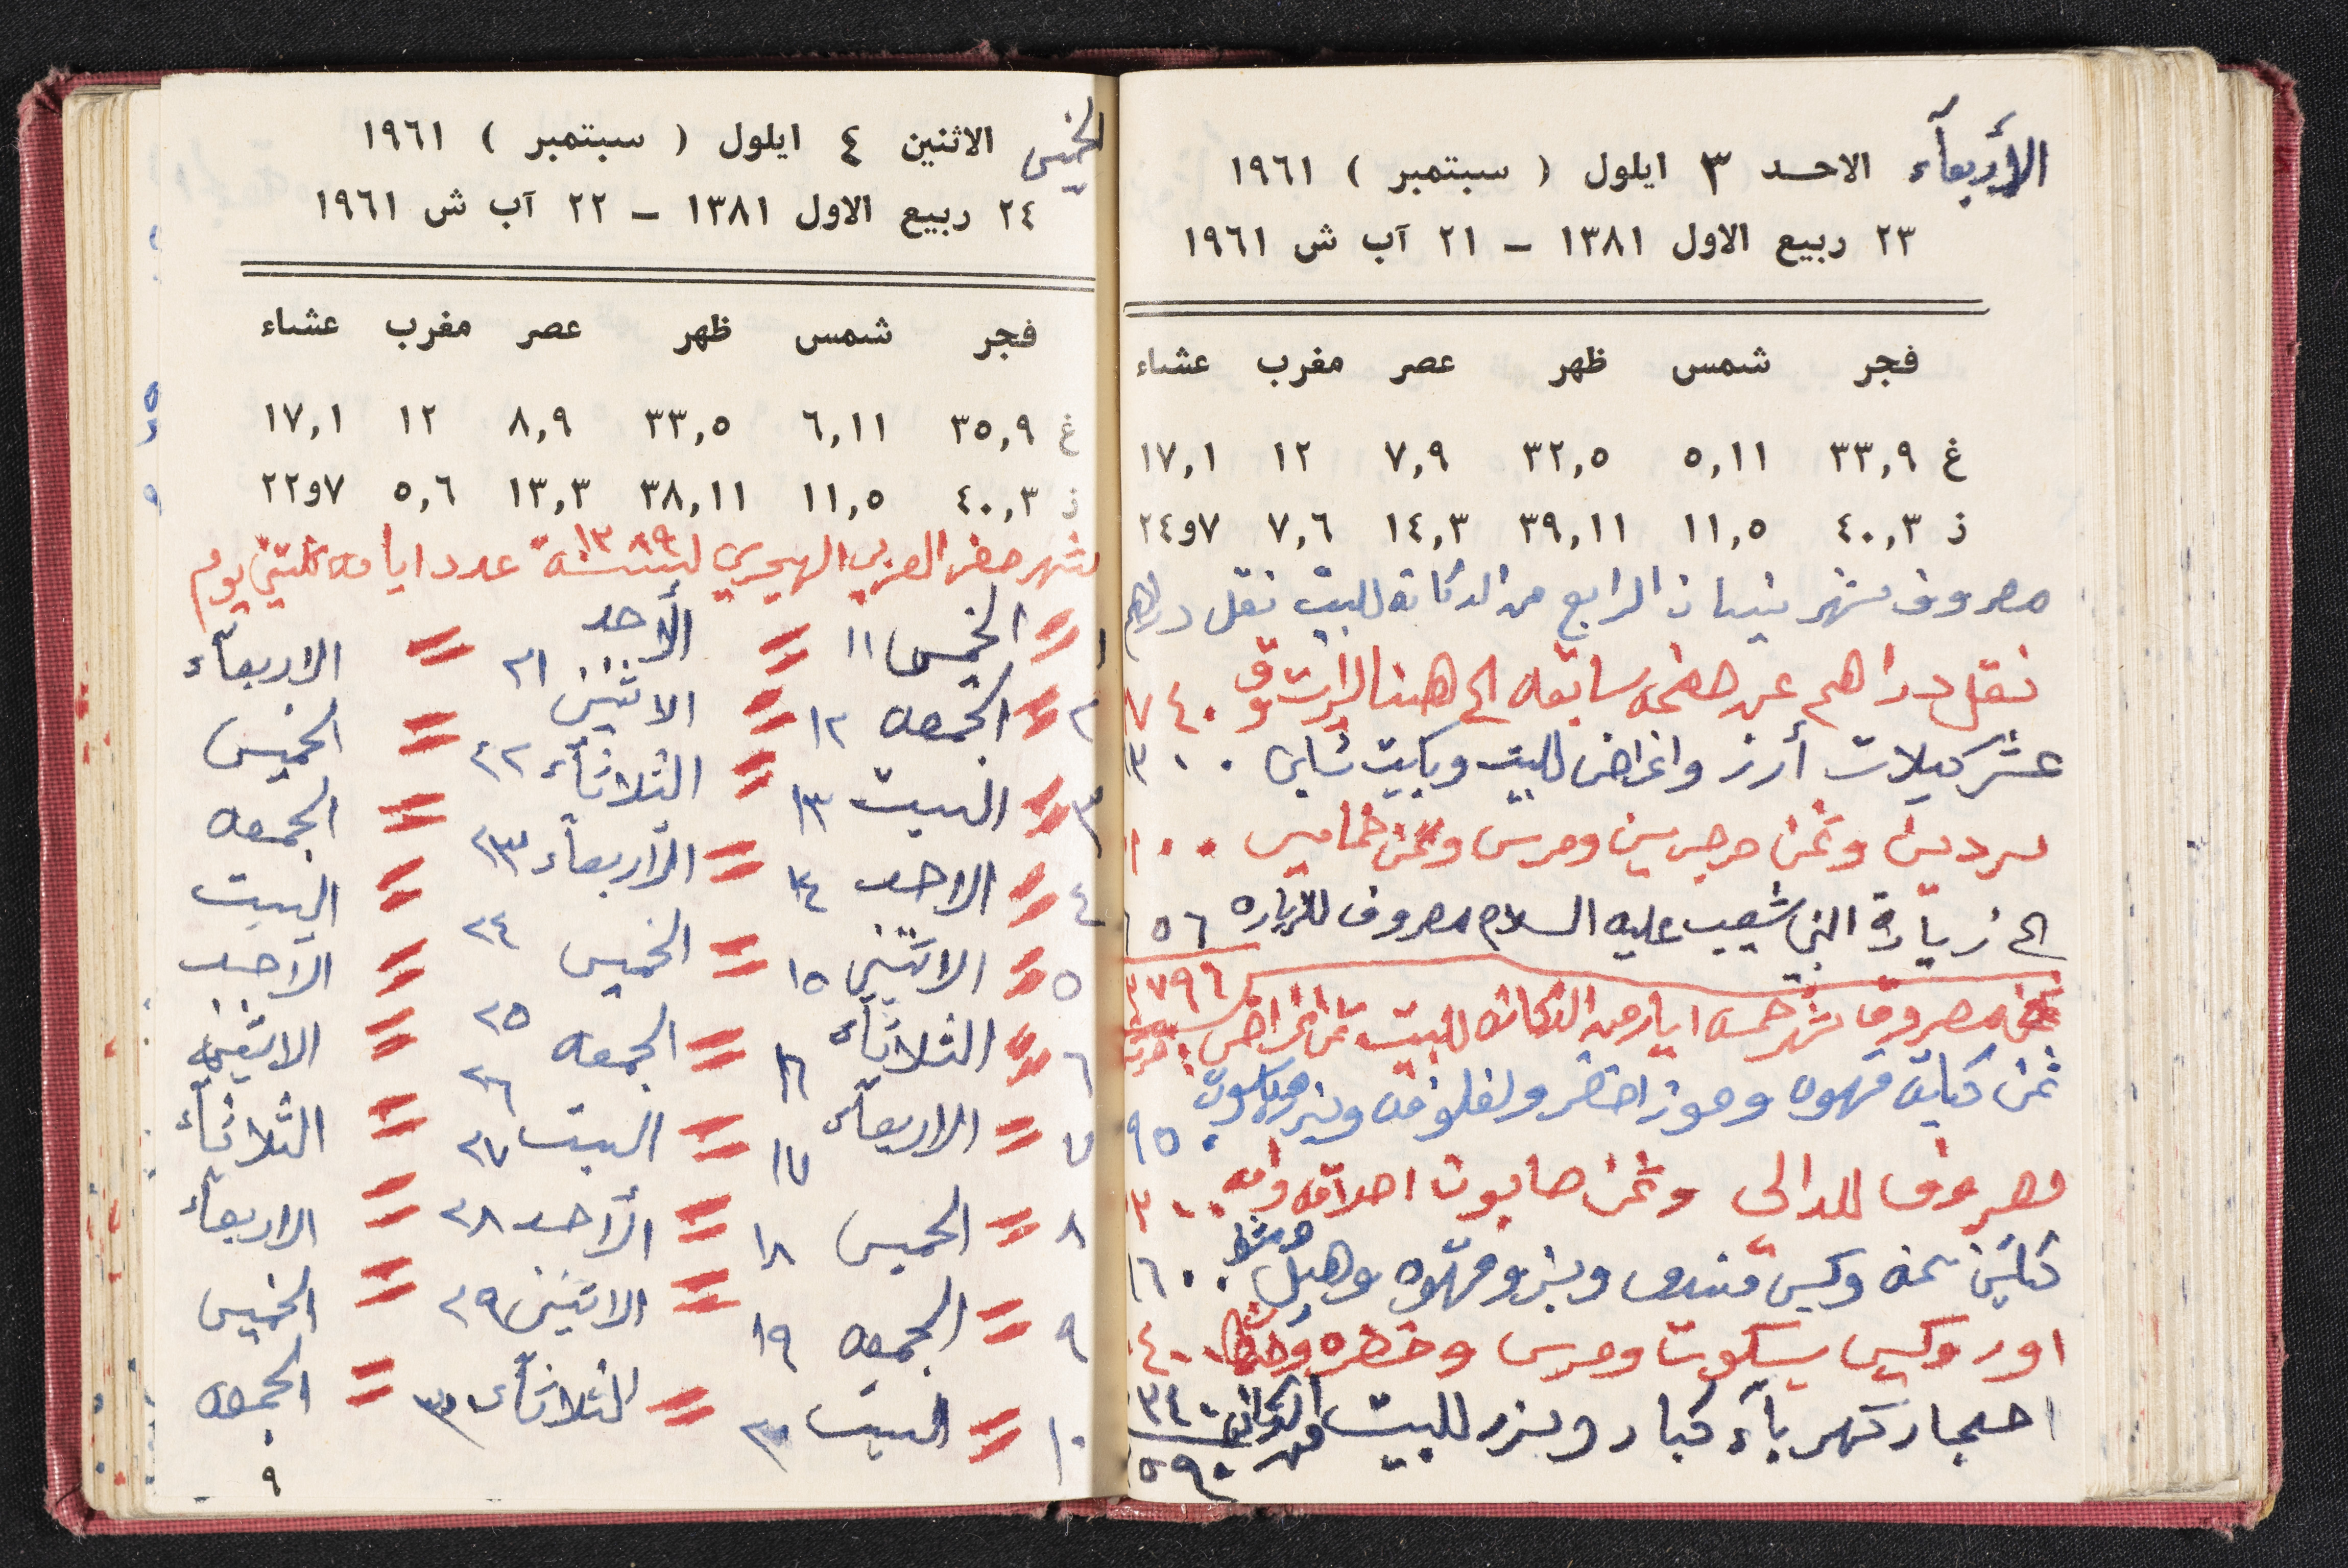 الأربعآء الاحد ٣ ايلول ( سبتمبر ) ١٩٦١
٢٣ ربيع الاول ١٣٨١ – ٢١ آب ش ١٩٦١
فجر شمس ظهر عصر مغرب عشاء
غ ٣٣,٩ ٥,١١ ٣٢,٥ ٧,٩ ١٢ ١٧,١
ذ ٤٠,٣ ١١,٥ ٣٩,١١ ١٤,٣ ٧,٦ ٧و٢٤
مصروف شهر نيسان الرابع من الدكانه للبيت نقل دراهم
نقل دراهم عن صفحه سابقه الى هنا ٧٤٠
عشر كيلات أرز واغراض للبيت وباكيت شاي ٣٠٠
سردين وثمن ومرس وثمن ١٠٠
الى زيارة النبي شعيب عليه السلام مصروف للزياره ٥٦
٧٩٦
مصروف شهر خمسه ايار من الدكانه للبيت ثمن اغراض
ثمن قهوه وموز اخضر وبزر ٩٥٠
مصروف للدالى وثمن صابون ٣٠٠
سمنه وكيس فندق وبزر وقهوه وهيل ٦٠٠
اور وكيس بسكوت ومرس وخضره ٤٠٠
احجار كهربآء كبار وبزر للبيت من الدكانه ٣٤٠
٥٩٠
الخميس الاثنين ٤ ايلول ( سبتمبر ) ١٩٦١
٢٤ ربيع الاول ١٣٨١ – ٢٢ آب ش ١٩٦١
فجر شمس ظهر عصر مغرب عشاء
غ ٣٥,٩ ٦,١١ ٣٣,٥ ٨,٩ ١٢ ١٧,١
ذ ٤٠,٣ ١١,٥ ٣٨,١١ ١٣,٣ ٥,٦ ٧و٢٢
شهر صفر العربي الهجري لسنة ١٣٨٩ عدد ايامه ثلثين يوم
١ = الخميس ١١ = الأحد ٢١ = الاربعآء
٢ = الجمعه ١٢ = الاثنين ٢٢ = الخميس
٣ = السبت ١٣ = الثلاثآء ٢٣ = الجمعه
٤ = الاحد ١٤ = الأربعآء ٢٤ = السبت
٥ = الاثنين ١٥ = الخميس ٢٥ = الأحد
٦ = الثلاثآء ١٦ = الجمعه ٢٦ = الاثنين
٧ = الاربعآء ١٧ = السبت ٢٧ = الثلاثآء
٨ = الخميس ١٨ = الأحد ٢٨ = الاربعآء
٩ = الجمعه ١٩ = الاثنين ٢٩ = الخميس
١٠ = السبت ٢٠ = الثلاثآء ٣٠ = الجمعه
٩